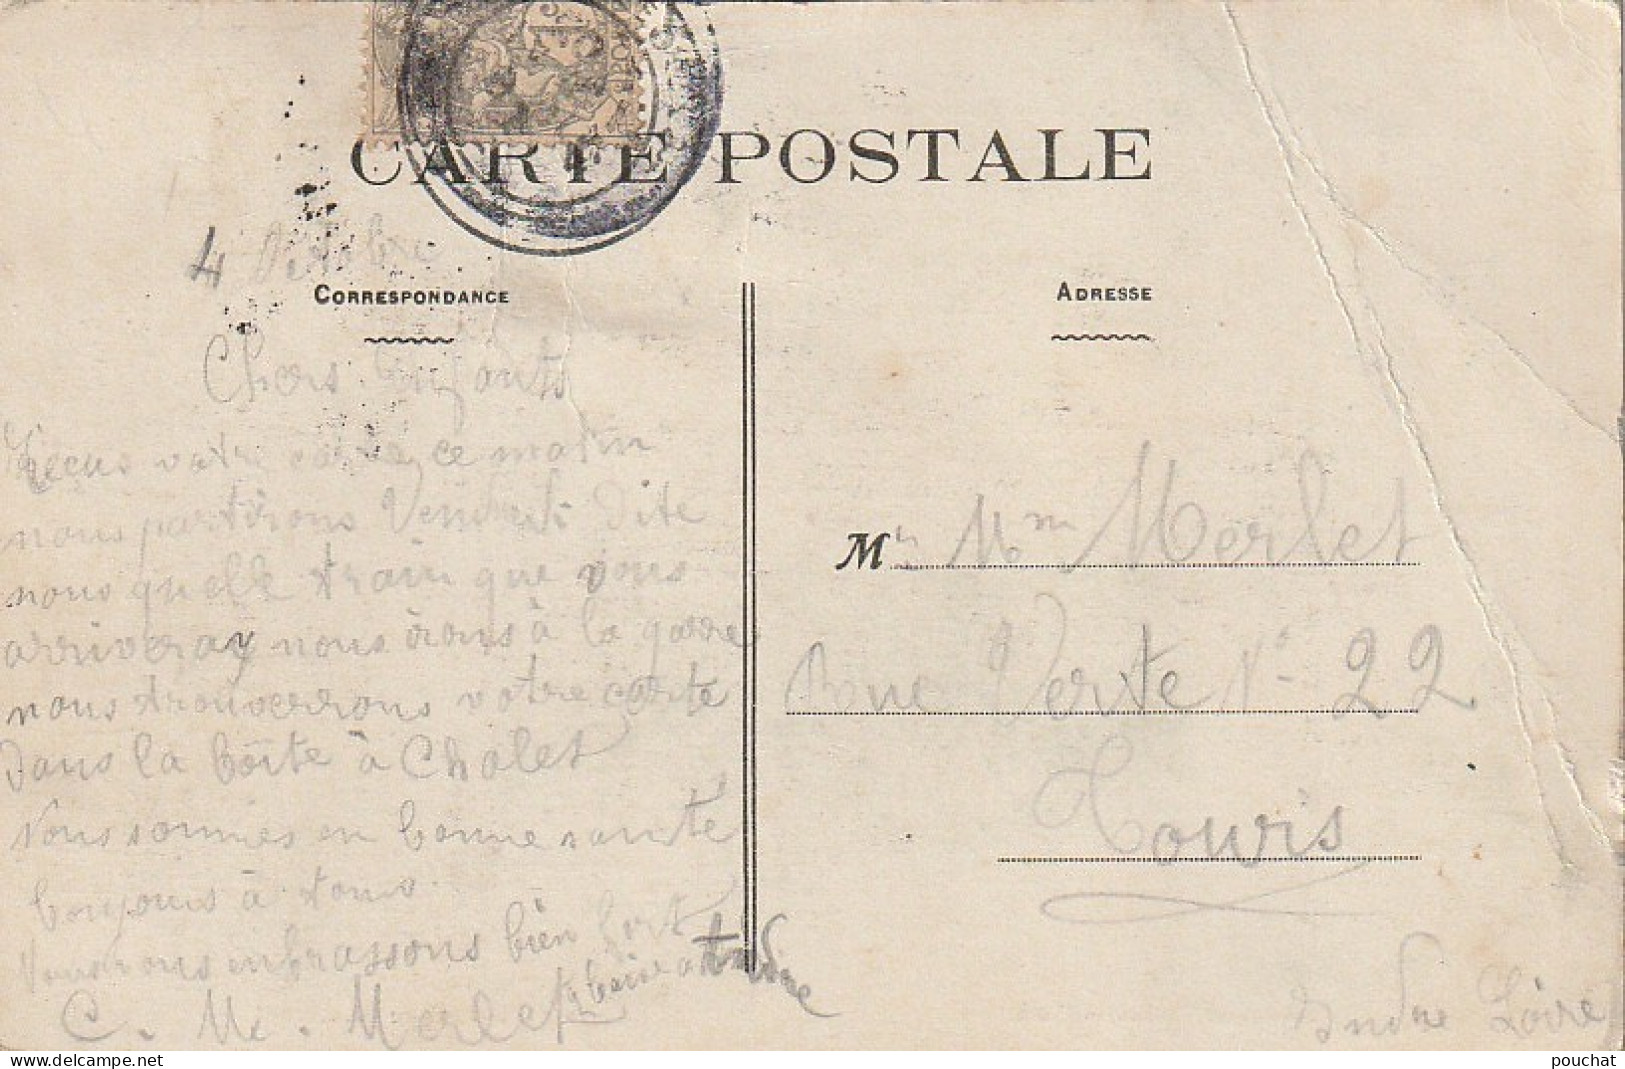 CARTE POSTALE
4 Octobre
CORRESPONDANCE
Chers Enfants
Reçus votre carte ce matin
nous partirons Vendredi Dite
nous quelle train que vous
arriveray nous irons à la garre
nous trouverrons votre carte
Dans la boîte à Cholet
Nous sommes en bonne santé
bonjours à tous.
Nous vous enbrassons bien fort
C. M. Merlet baise a tandre
ADRESSE
Mr Mme Merlet
Rue Verte N° 22
Tours
Indre Loire
pouchat